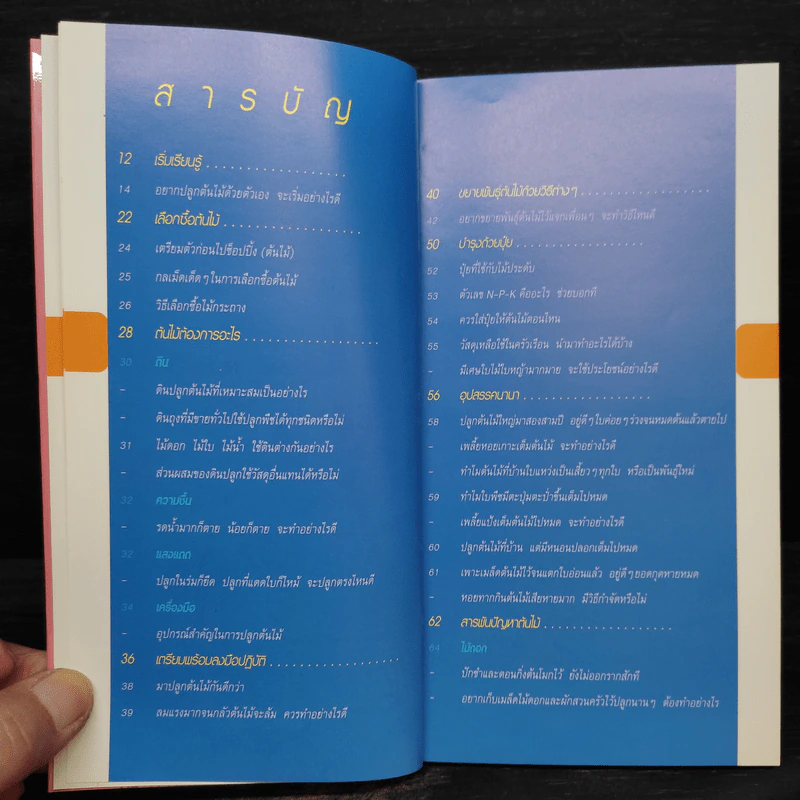 สารบัญ
12 เริ่มเรียนรู้ ....................
14 อยากปลูกต้นไม้ด้วยตัวเอง จะเริ่มอย่างไรดี
22 เลือกซื้อต้นไม้ ....................
24 เตรียมตัวก่อนไปช็อปปิ้ง (ต้นไม้)
25 กลเม็ดเด็ดๆ ในการเลือกซื้อต้นไม้
26 วิธีเลือกซื้อไม้กระถาง
28 ต้นไม้ต้องการอะไร ....................
30 ดิน
– ดินปลูกต้นไม้ที่เหมาะสมเป็นอย่างไร
– ดินถุงที่มีขายทั่วไปใช้ปลูกพืชได้ทุกชนิดหรือไม่
31 ไม้ดอก ไม้ใบ ไม้น้ำ ใช้ดินต่างกันอย่างไร
– ส่วนผสมของดินปลูกใช้วัสดุอื่นแทนได้หรือไม่
32 ความชื้น
– รดน้ำมากก็ตาย น้อยก็ตาย จะทำอย่างไรดี
32 แสงแดด
– ปลูกในร่มก็ยืด ปลูกที่แดดใบก็ไหม้ จะปลูกตรงไหนดี
34 เครื่องมือ
– อุปกรณ์สำคัญในการปลูกต้นไม้
36 เตรียมพร้อมลงมือปฏิบัติ ....................
38 มาปลูกต้นไม้กันดีกว่า
39 ลมแรงมากจนกลัวต้นไม้จะล้ม ควรทำอย่างไรดี
40 ขยายพันธุ์ต้นไม้ด้วยวิธีต่างๆ ....................
42 อยากขยายพันธุ์ต้นไม้ไว้แจกเพื่อนๆ จะทำวิธีไหนดี
50 บำรุงด้วยปุ๋ย ....................
52 ปุ๋ยที่ใช้กับไม้ประดับ
53 ตัวเลข N-P-K คืออะไร ช่วยบอกที
54 ควรใส่ปุ๋ยให้ต้นไม้ตอนไหน
55 วัสดุเหลือใช้ในครัวเรือน นำมาทำอะไรได้บ้าง
– มีเศษใบไม้ใบหญ้ามากมาย จะใช้ประโยชน์อย่างไรดี
56 อุปสรรคนานา ....................
58 ปลูกต้นไม้ใหญ่มาสองสามปี อยู่ดีๆ ใบค่อยๆ ร่วงจนหมดต้นแล้วตายไป
– เพลี้ยหอยเกาะเต็มต้นไม้ จะทำอย่างไรดี
– ทำไมต้นไม้ที่บ้านใบแหว่งเป็นเสี้ยวๆ ทุกใบ หรือเป็นพันธุ์ใหม่
59 ทำไมใบพืชมีตะปุ่มตะป่ำขึ้นเต็มไปหมด
– เพลี้ยแป้งเต็มต้นไม้ไปหมด จะทำอย่างไรดี
60 ปลูกต้นไม้ที่บ้าน แต่มีหนอนปลอกเต็มไปหมด
61 เพาะเมล็ดต้นไม้ไว้จนแตกใบอ่อนแล้ว อยู่ดีๆ ยอดกุดหายหมด
– หอยทากกินต้นไม้เสียหายมาก มีวิธีกำจัดหรือไม่
62 สารพันปัญหาต้นไม้ ....................
64 ไม้ดอก
– ปักชำและตอนกิ่งต้นโมกไว้ ยังไม่ออกรากสักที
– อยากเก็บเมล็ดไม้ดอกและผักสวนครัวไว้ปลูกนานๆ ต้องทำอย่างไร